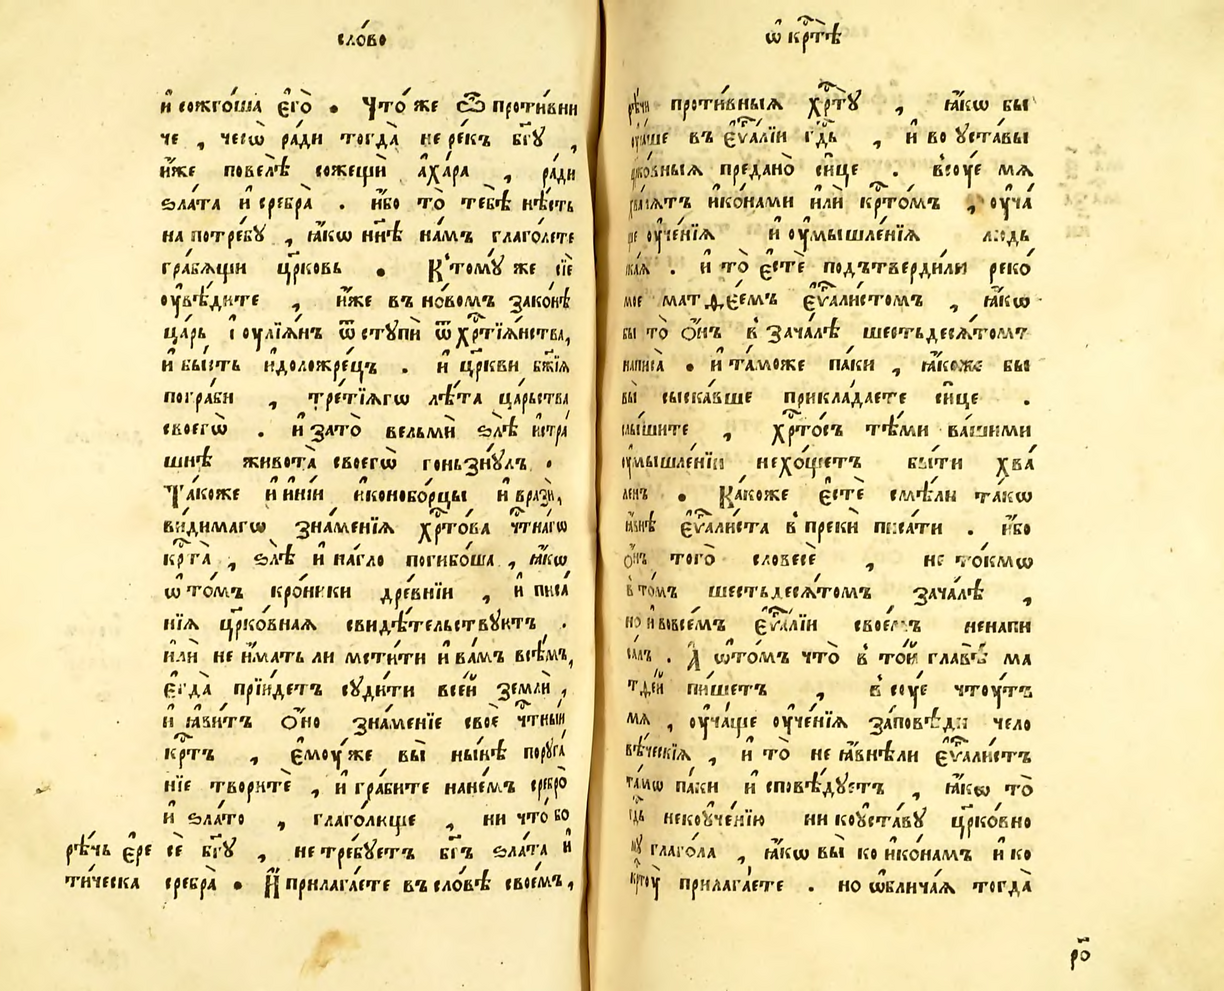 сло́во
и҆ сожго́ша є҆го̀ . Что́ же ѿ проти́вни
че , чесѡ̀ ра́ди тогда̀ не ре́къ бг҃у ,
и҆́же повелѣ̀ сожещѝ а҆ха́ра , ра́ди
ѕла́та и҆ сребра̀ . и҆́бо то̀ тебѣ̀ нѣ́сть
на потре́бу , ꙗ҆́кѡ нн҃ѣ на́мъ глаго́лете
гра́бѧщи цр҃ковь . К̾ тому́ же сїѐ
оу҆вѣ́дите , и҆́же въ но́вомъ зако́нѣ
ца́рь і҆оулїѧ́нъ ѿступѝ ѿ хрⷭ҇тїѧ́нства,
и҆ бы́сть и҆доложре́цъ . и҆ цр҃кви бж҃їѧ
погра́би , тре́тїѧгѡ лѣ́та ца́рьства
своегѡ̀ . и҆ зато̀ вельмѝ ѕлѣ̀ и҆стра́
шнѣ живота̀ своегѡ̀ гоньзну́лъ .
Та́коже и҆ и҆ні́и и҆конобо́рцы и҆ вразѝ,
ви́димагѡ зна́менїѧ хрⷭ҇то́ва чⷭ҇тна́гѡ
крⷭ҇та̀ , ѕлѣ̀ и҆ на́гло погибо́ша , ꙗ҆́кѡ
ѡ҆ то́мъ кро́ники дре́внїи , и҆ писа́
нїѧ цр҃ко́внаѧ свидѣ́тельствуютъ .
и҆лѝ не и҆́мать ли мсти́ти и҆ ва́мъ всѣ́мъ,
є҆гда̀ прїи́детъ суди́ти все́й землѝ ,
и҆ ꙗ҆ви́тъ ѻ҆́но зна́менїе своѐ чⷭ҇тны́и
крⷭ҇тъ , є҆моу́же вы̀ ны́нѣ поруга́
нїе творитѐ , и҆ гра́бите на не́мъ сребро̀
и҆ ѕла́то , глаго́люще , ни что́ бо
рѣ́чь є҆ре сѐ бг҃у , не тре́буетъ бг҃ъ ѕла́та и҆
ти́ческа сребра̀ . И҆ прилага́ете въ сло́вѣ свое́мъ,
ѡ҆ крⷭ҇тѣ̀
рѣ́чи проти́вныѧ хрⷭ҇ту̀ , ꙗ҆́кѡ бы
въ є҆ѵⷢ҇а́лїи гдⷭ҇ь , и҆ во уста́вы
црко́вныѧ пре́дано̀ си́це . всу́е мѧ
и҆ко́нами и҆лѝ крⷭ҇то́мъ , оу҆ча́
ще оу҆че́нїѧ и҆ оу҆мышле́нїѧ лю́дь
скаѧ . и҆ то̀ є҆стѐ подътверди́ли реко́
мое матѳе́емъ є҆ѵⷢ҇али́стомъ , ꙗ҆́кѡ
бы то̀ ѻ҆́нъ в̾ зача́лѣ шестьдесѧ́томъ
написа̀ . и҆ та́може па́ки , ꙗ҆́коже бы
вы̀ сыска́вше прикла́даете си́це .
слы́шите , хрⷭ҇то́съ тѣ́ми ва́шими
оу҆мышле́нїи не хо́щетъ бы́ти хва́
ленъ . Ка́коже є҆стѐ смѣ́ли та́кѡ
ꙗ҆́внѣ є҆ѵⷢ҇али́ста в̾ прекѝ писа́ти . и҆́бо
ѻ҆́нъ того̀ словесѐ , не то́кмѡ
в̾ то́мъ шестьдесѧ́томъ зача́лѣ ,
но и҆ во все́мъ є҆ѵⷢ҇а́лїи свое́мъ не напи
са́лъ . А҆ ѡ҆ то́мъ что̀ в̾ то́й главѣ̀ ма
тѳе́й пи́шетъ , в̾су́е чтоу́тъ
мѧ , оу҆ча́ще оу҆че́нїѧ за́повѣди чело
вѣ́ческїѧ , и҆ то̀ не ꙗ҆внѣ́ли є҆ѵⷢ҇али́стъ
та́мѡ па́ки и҆сповѣ́дуетъ , ꙗ҆́кѡ то̀
гдⷭ҇ь не к оу҆че́нїю ни к оу҆ста́ву цр҃ко́вно
му глаго́ла , ꙗ҆́кѡ вы̀ ко и҆ко́намъ и҆ ко
крⷭ҇тоу̀ прилага́ете . но ѡ҆блича́ѧ тогда̀
ро҃